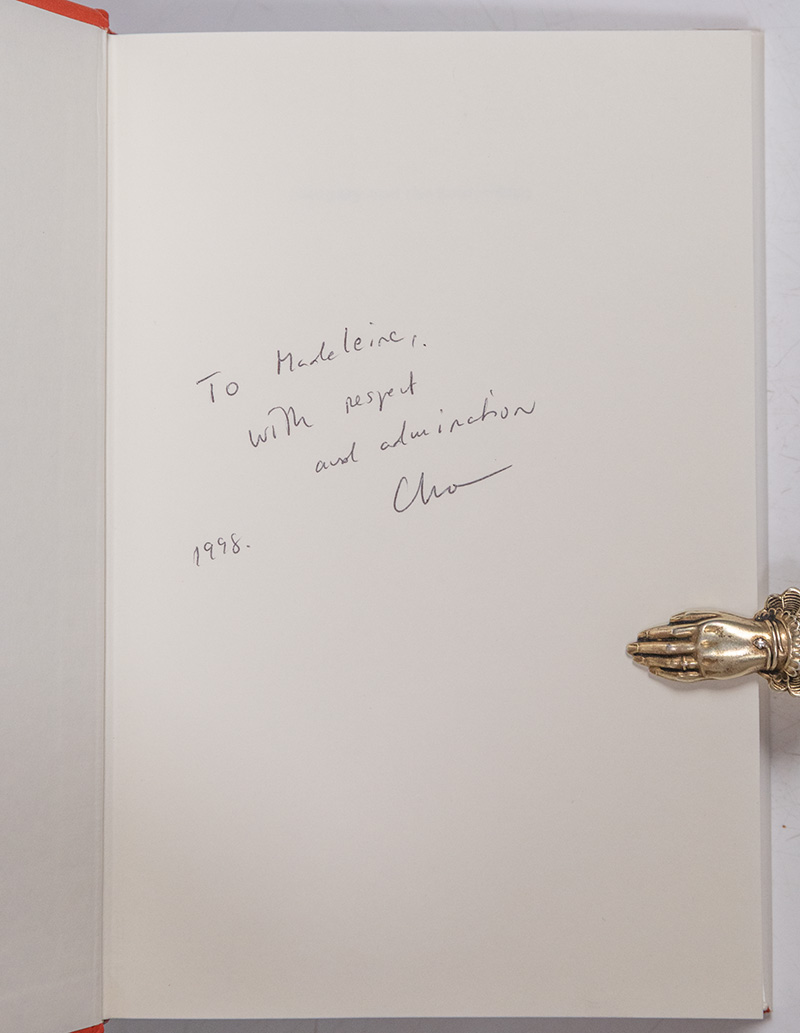 To Madeleine,.
with respect
and admiration
1998.